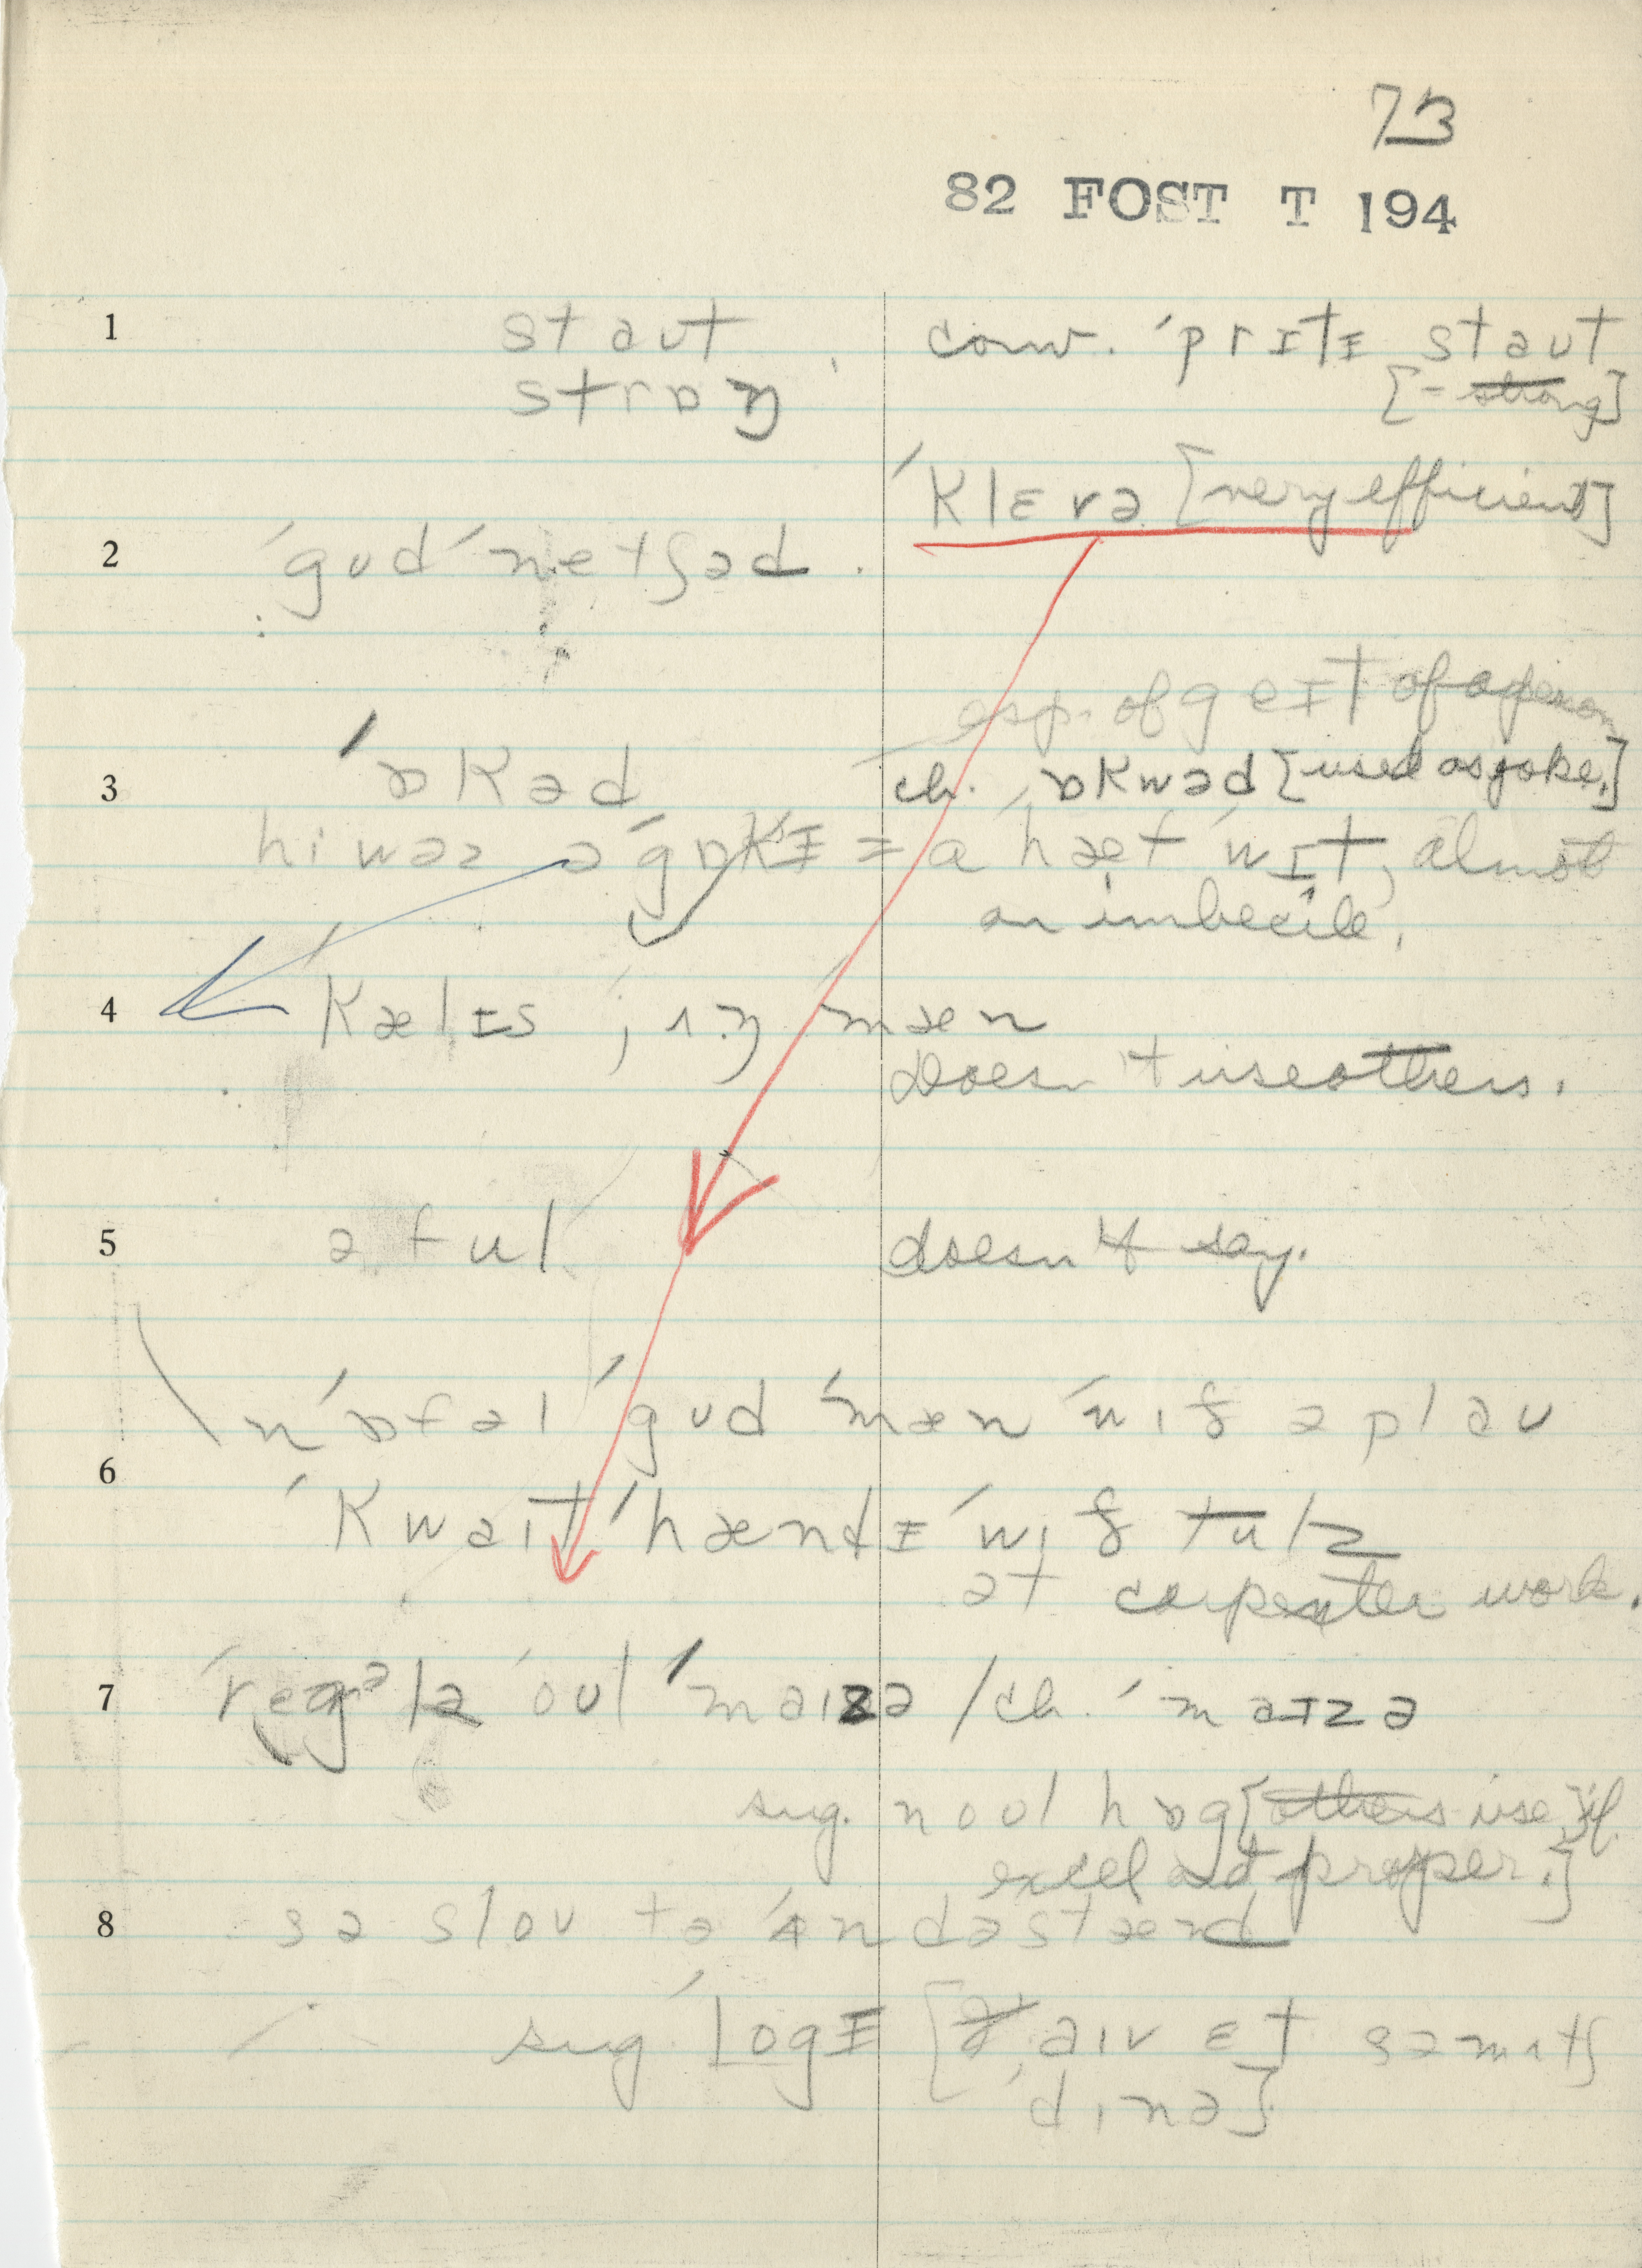 73
82 FOST T 194
1 staut conv. ˈprɪtɪ staut
strɒŋ [= strong]
ˈklɛvə [very efficient]
2 ˈgudˈnetʃəd.
esp. of geɪt of a person
3 ˈɒkəd ch. ɒkwəd [used as joke.]
hi wəz əˈgɒkɪ = a ˈhæfˈwɪt, almost
an imbecile.
4 ˈkælɪs j ʌŋ mæn
doesn't use others.
5 əful doesn't say.
nˈɒfəlˈgudˈmænˈwɪð ə plau
6
ˈkwaitˈhændɪˈwið tulz
at carpenter work.
7 ˈregələˈoulˈmaizə / ch. ˈmaɪzə
sug. n oul hɒg [others use if
excel and proper.]
8 sə slou tə ˈʌndəstænd
sug. ˈlogɪ [aiv ɛt sə mʌtʃ
ˈdinə]